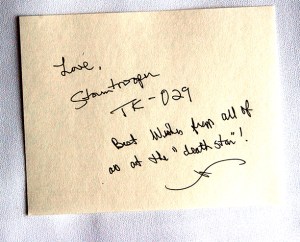 Love,
Stormtrooper
TK-029
Best Wishes from all of
us at the "death star"!